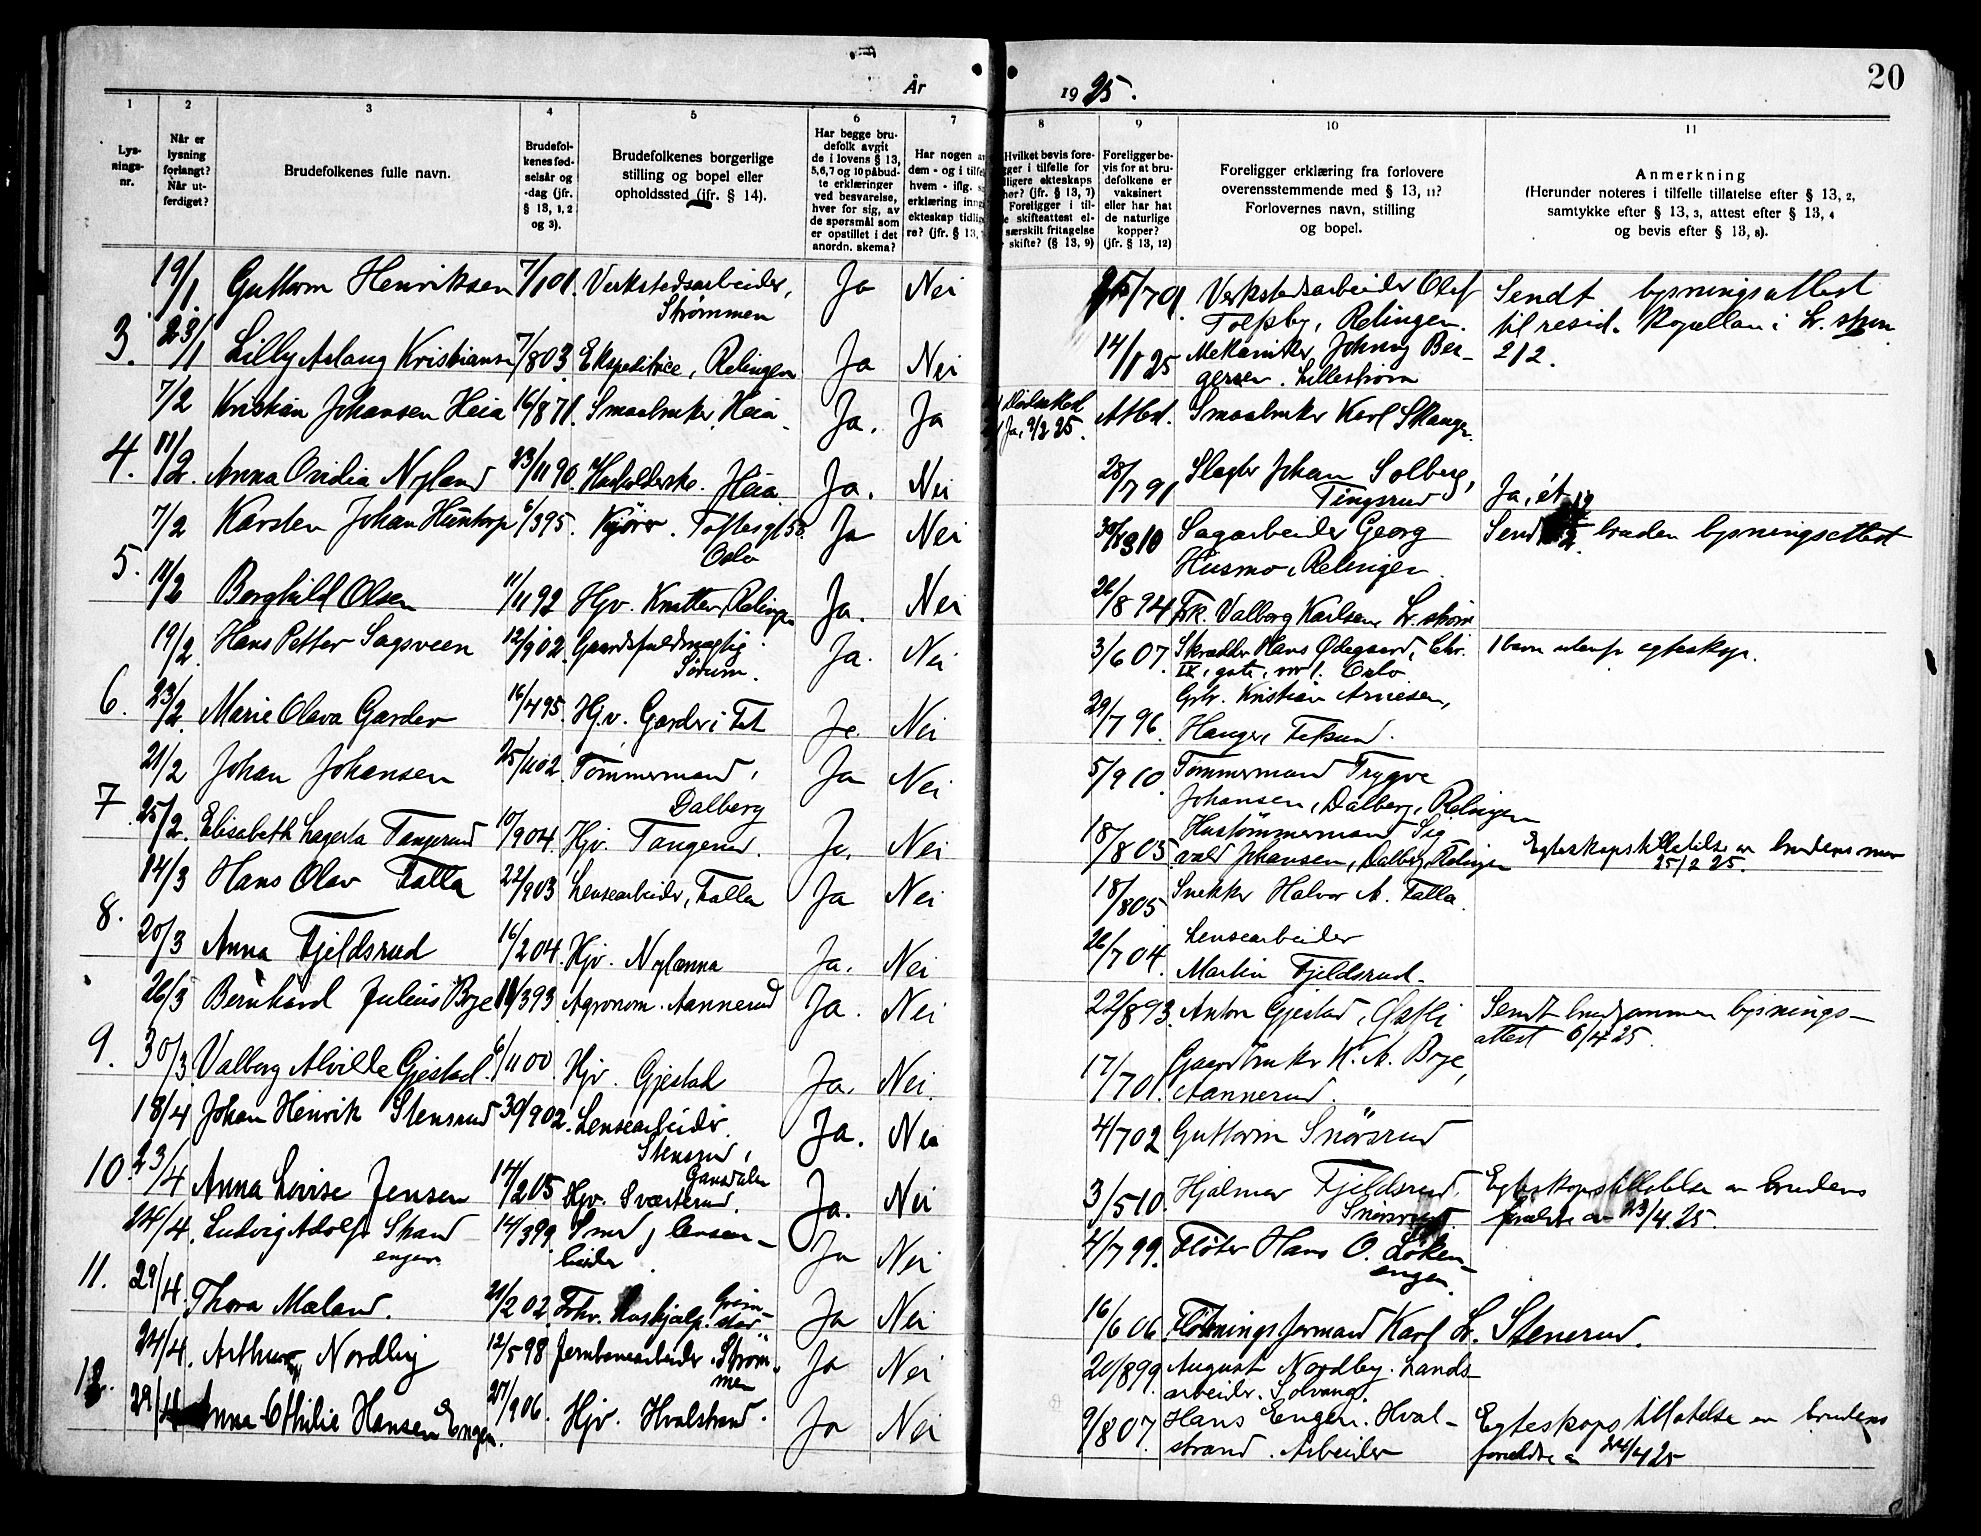 År 1925.
20
1 2 3 4 5 6 7 8 9 10 11
Lysningsnr.
Når er lysning forlangt? Når utferdiget?
Brudefolkenes fulle navn.
Brudefolkenes fødselsår og -dag (jfr. § 13, 1, 2 og 3).
Brudefolkenes borgerlige stilling og bopel eller opholdssted (jfr. § 14).
Har begge brudefolk avgit de i lovens § 13, 5, 6, 7 og 10 påbudte erklæringer ved besvarelse, hver for sig, av de spørsmål som er opstillet i det anordn. skema?
Har nogen av dem - og i tilfe
hvem - iflg.
erklæring inng
ekteskap tidlig
re? (jfr. § 13,
Hvilket bevis fore-
gger i tilfelle for
ligere ekteskaps
her? (jfr. § 13, 7)
Foreligger i til-
le skifteattest el-
særskilt fritagelse
skifte? (§ 13, 9)
Foreligger bevis for at brudefolkene er vaksinert eller har hat de naturlige kopper? (jfr. § 13, 12)
Foreligger erklæring fra forlovere overensstemmende med § 13, 11? Forlovernes navn, stilling og bopel.
Anmerkning
(Herunder noteres i tilfelle tillatelse efter § 13, 2, samtykke efter § 13, 3, attest efter § 13, 4 og bevis efter § 13, 8).
19/1. Guttorm Henriksen 7/1 01. Verkstedsarbeider, Strømmen Ja Nei /7 01. Verkstedsarbeider Olaf Tolfsby, Relingen. Sendt lysningsattest til resid. kapellan i L. strøm
3. 23/1 Lilly Aslaug Kristiansen 7/8 03. Ekspeditrice, Relingen Ja Nei 14/1 25 Mekaniker Johnny Bergersen. Lillestrøm 2/2.
7/2 Kristian Johansen Heia 16/8 71. Smaabruker, Heia. Ja. Ja Ja, 9/2 25. Attest. Smaabruker Karl Skanger.
4. 11/2. Anna Ovidia Nyland 23/11 90. Husholderske. Heia Ja. Nei 28/7 91 Slagter Johan Solberg, Tingsrud
7/2 Karsten Johan Huntorp 6/3 95. Kjører. Toftesgt 50. Oslo Ja Nei 30/ 10 Sagarbeider Georg Husmo, Relingen. Ja, ét
Sendt bruden lysningsattest
5. 11/2 Borghild Olsen 11/11 92 Hjv. Knatten, Relingen Ja. Nei 26/8 94 Frk. Valborg Karlsen, L. strøm
19/2. Hans Petter Sagsveen 12/9 02. Gaardsfuldmægtig. Sørum. Ja. Nei 3/6 07. Skrædder Hans Ødegaard, Chr. IX, gate, nr 1. Oslo. 1 barn utenfor egteskap.
6. 23/2. Marie Olava Garder 16/4 95. Hjv. Garder i Fet Ja. Nei 29/7 96. Gbr. Kristian Arnesen, Hanger, Fetsund.
21/2 Johan Johansen 25/11 02. Tømmermand, Dalberg Ja Nei 5/9 10. Tømmermand Trygve Johansen, Dalberg, Relingen
7 25/2. Elisabeth Lagerta Tangerud 10/9 04. Hjv. Tangerud. Ja. Nei 18/8 05. Hustømmermand Sigvald Johansen, Dalberg, Relingen Egteskapstillatelse av brudens mor 25/2 25.
14/3 Hans Olav Falla 22/9 03 Lensearbeider, Falla Ja Nei 18/8 05 Snekker Halvor A. Falla.
8. 20/3 Anna Fjeldsrud 16/2 04. Hjv. Nylænna Ja. Nei 26/7 04. Lensearbeider Martin Fjeldsrud.
26/3 Bernhard Julius Bye /3 93 Agronom. Aannerud Ja. Nei 22/8 93. Anton Gjestad, Østli Sendt brudgommen lysningsattest 6/4 25.
9. 30/3. Valborg Alvilde Gjestad. 6/11 00. Hjv. Gjestad Ja. Nei. 17/7 01. Gaardbruker K. A. Bye, Aannerud.
18/4 Johan Henrik Stensrud 30/9 02. Lensearbeider. Stensrud, Gansdalen Ja. Nei 4/7 02 Guttorm Snørsrud
10. 23/4 Anna Lovise Jensen 14/2 05 Hjv. Sværterud. Ja. Nei 3/5 10. Hjalmar Fjeldsrud. Snørsrud. Egteskapstillatelse av brudens forældre av 23/4 25.
24/4. Ludvig Adolf Skandengen 14/3 99. Smed, lensearbeider. Ja Nei 4/7 99. Fløter Hans O. Løkenengen.
11. 29/4. Thora Mæland. 21/2 02. Frhv. Hushjælp. Grimstad Ja Nei 16/6 06. Fløtningsformand Karl L. Stenerud.
24/4. Arthur Nordby 12/5 98 Jernbanearbeider. Strømmen Ja Nei 20/8 99. August Nordby. Landsarbeider. Solvang.
12. 29/4 Anna Othilie Hansen Engen. 27/9 06. Hjv. Hvalstrand. Ja Nei 9/8 07. Hans Engen. Hvalstrand. Arbeider Egteskapstillatelse av brudens forældre av 24/4 25